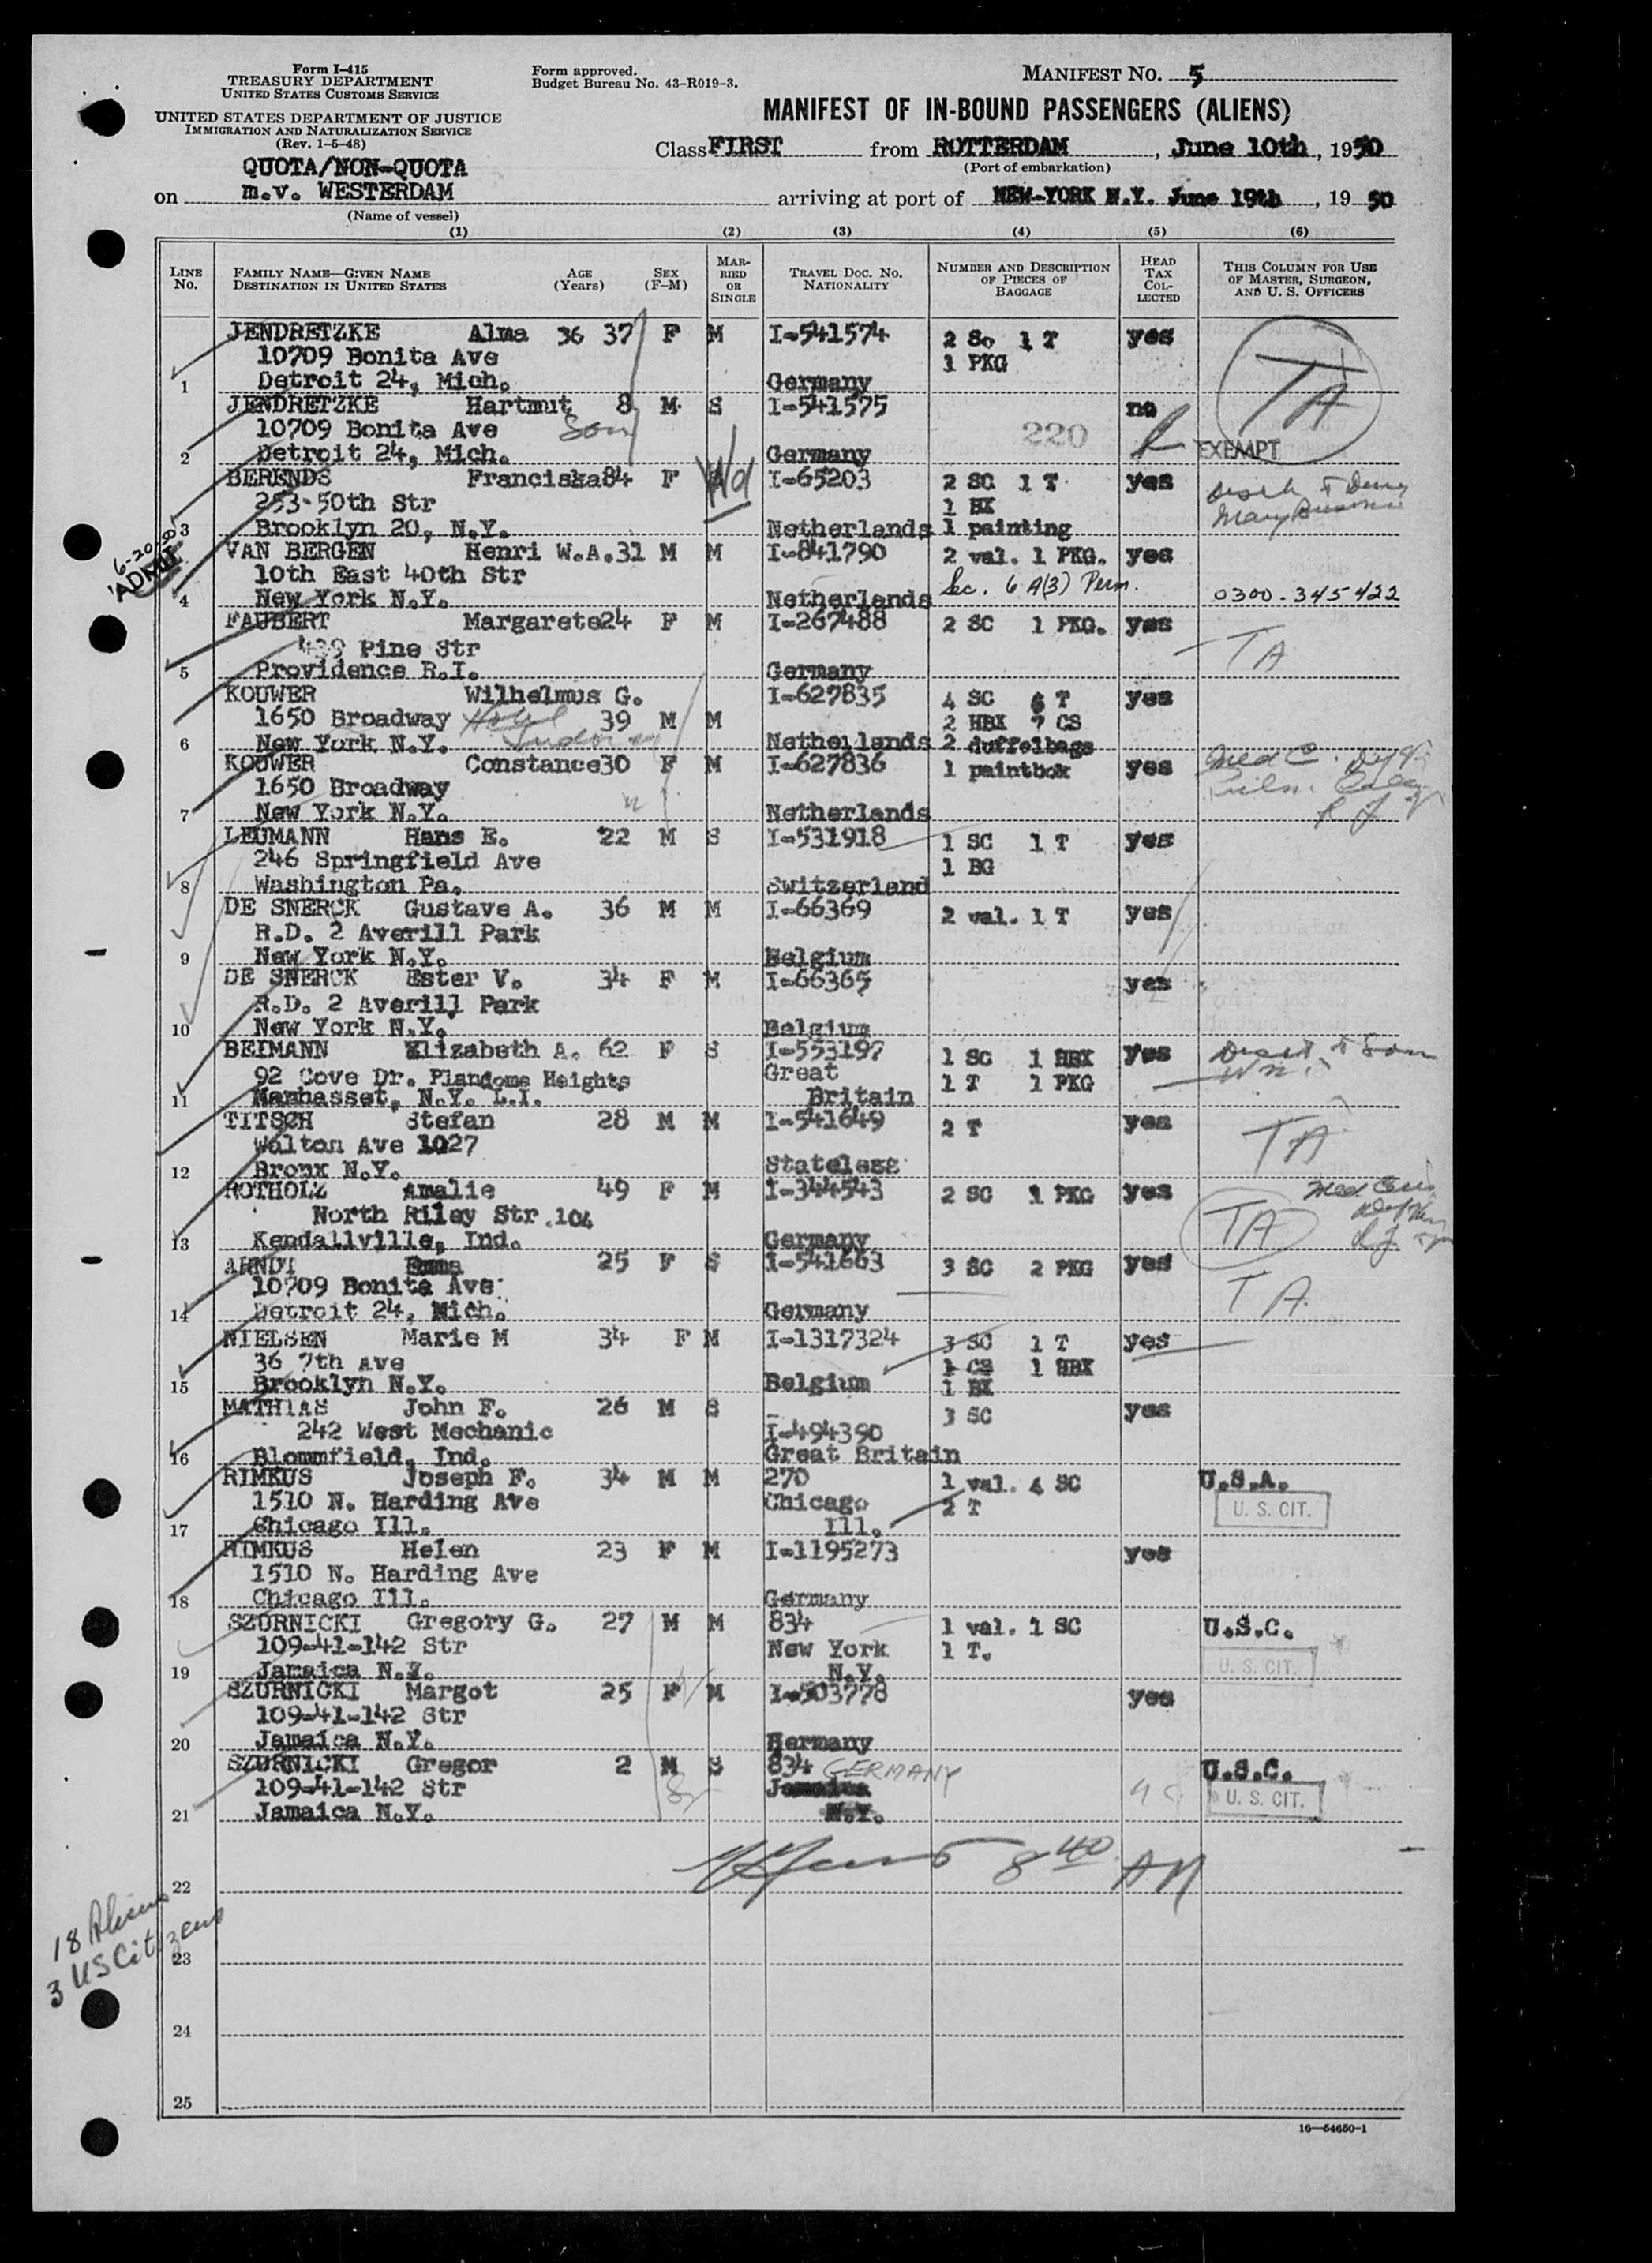 Form I-415
TREASURY DEPARTMENT
UNITED STATES CUSTOMS SERVICE
UNITED STATES DEPARTMENT OF JUSTICE
IMMIGRATION AND NATURALIZATION SERVICE
(Rev. 1-5-48)
Form approved.
Budget Bureau No. 43-R019-3.
MANIFEST NO. 5
MANIFEST OF IN-BOUND PASSENGERS (ALIENS)
Class FIRST from ROTTERDAM, June 10th, 1950
(Port of embarkation)
QUOTA/NON-QUOTA
on m.v. WESTERDAM arriving at port of NEW-YORK N.Y. June 19th, 1950
(Name of vessel)
(1) (2) (3) (4) (5) (6)
LINE No. FAMILY NAME—GIVEN NAME DESTINATION IN UNITED STATES AGE (Years) SEX (F-M) MARRIED OR SINGLE TRAVEL DOC. NO. NATIONALITY NUMBER AND DESCRIPTION OF PIECES OF BAGGAGE HEAD TAX COLLECTED THIS COLUMN FOR USE OF MASTER, SURGEON, AND U. S. OFFICERS
JENDRETZKE Alma 36 37 F M I-541574 2 So 1 T yes
10709 Bonita Ave 1 PKG TA
1 Detroit 24, Mich. Germany
JENDRETZKE Hartmut 8 M S I-541575 no
10709 Bonita Ave Son 220 EXEMPT
2 Detroit 24, Mich. Germany
BERENDS Franciska 84 F Wd I-65203 2 SC 1 T yes
253-50th Str 1 BX
3 Brooklyn 20, N.Y. Netherlands 1 painting
6-20-50 ADMIT
VAN BERGEN Henri W.A. 31 M M I-841790 2 val. 1 PKG. yes
10th East 40th Str Sec. 6 A(3) Perm.
4 New York N.Y. Netherlands 0300-345422
FAUBERT Margarete 24 F M I-267488 2 SC 1 PKG. yes
439 Pine Str TA
5 Providence R.I. Germany
KOUWER Wilhelmus G. I-627835 4 SC 6 T yes
1650 Broadway Hotel 39 M M 2 HBX 7 CS
6 New York N.Y. Netherlands 2 duffelbags
KOUWER Constance 30 F M I-627836 1 paintbox yes
1650 Broadway
7 New York N.Y. Netherlands
LEUMANN Hans E. 22 M S I-531918 1 SC 1 T yes
246 Springfield Ave 1 BG
8 Washington Pa. Switzerland
DE SNERCK Gustave A. 36 M M I-66369 2 val. 1 T yes
R.D. 2 Averill Park
9 New York N.Y. Belgium
DE SNERCK Ester V. 34 F M I-66365 yes
R.D. 2 Averill Park
10 New York N.Y. Belgium
BEIMANN Elizabeth A. 62 F S I-553197 1 SC 1 HBX yes
92 Cove Dr. Plandome Heights Great 1 T 1 PKG
11 Manhasset, N.Y. L.I. Britain
TITSCH Stefan 28 M M I-541649 2 T yes
Walton Ave 1027 TA
12 Bronx N.Y. Stateless
ROTHOLZ Amalie 49 F M I-344543 2 SC 1 PKG yes
North Riley Str.104 TA
13 Kendallville, Ind. Germany
ARNDT Emma 25 F S I-541663 3 SC 2 PKG yes
10709 Bonita Ave TA
14 Detroit 24, Mich. Germany
NIELSEN Marie M 34 F M I-1317324 3 SC 1 T yes
36 7th Ave 1 CS 1 HBX
15 Brooklyn N.Y. Belgium 1 BX
MATHIAS John F. 26 M S 3 SC yes
242 West Mechanic I-494390
16 Blommfield, Ind. Great Britain
RIMKUS Joseph F. 34 M M 270 1 val. 4 SC U.S.A.
1510 N. Harding Ave Chicago 2 T U. S. CIT.
17 Chicago Ill. Ill.
RIMKUS Helen 23 F M I-1195273 yes
1510 N. Harding Ave
18 Chicago Ill. Germany
SZURNICKI Gregory G. 27 M M 834 1 val. 1 SC U.S.C.
109-41-142 Str New York 1 T. U. S. CIT.
19 Jamaica N.Y. N.Y.
SZURNICKI Margot 25 F M I-503778 yes
109-41-142 Str
20 Jamaica N.Y. Germany
SZURNICKI Gregor 2 M S 834 GERMANY U.S.C.
109-41-142 Str Jamaica U. S. CIT.
21 Jamaica N.Y. N.Y.
8 40 AM
22
18 Aliens
3 US Citizens
23
24
25
16—54650-1